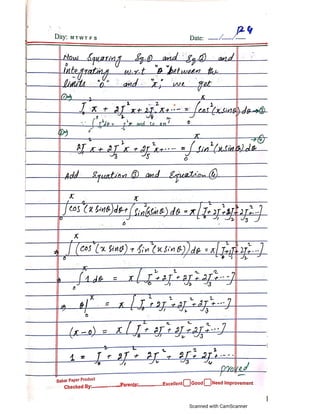 P4
Day: M T W T F S Date: __/__/__
Now Squaring Eq ① and Eq ② and
Integrating w.r.t "θ" between the
limits "0" and "π", we get
①⇒
J₀² π + 2J₂² π + 2J₄² π + ... = ∫₀^π cos²(x sinθ) dθ →⑤
②⇒
2J₁² π + 2J₃² π + 2J₅² π + ... = ∫₀^π sin²(x sinθ) dθ →⑥
Add Equation ⑤ and Equation ⑥,
∫₀^π cos²(x sinθ) dθ + ∫₀^π sin²(x sinθ) dθ = π[J₀² + 2J₁² + 2J₂² + 2J₃² + ...]
∫₀^π (cos²(x sinθ) + sin²(x sinθ)) dθ = π[J₀² + 2J₁² + 2J₂² + ...]
∫₀^π 1 dθ = π[J₀² + 2J₁² + 2J₂² + 2J₃² + ...]
θ|₀^π = π[J₀² + 2J₁² + 2J₂² + 2J₃² + ...]
(π - 0) = π[J₀² + 2J₁² + 2J₂² + 2J₃² + ...]
1 = J₀² + 2J₁² + 2J₂² + 2J₃² + 2J₄² + ...
proved
Paper Product
Checked By: Parents: Excellent Good Need Improvement
1
Scanned with CamScanner